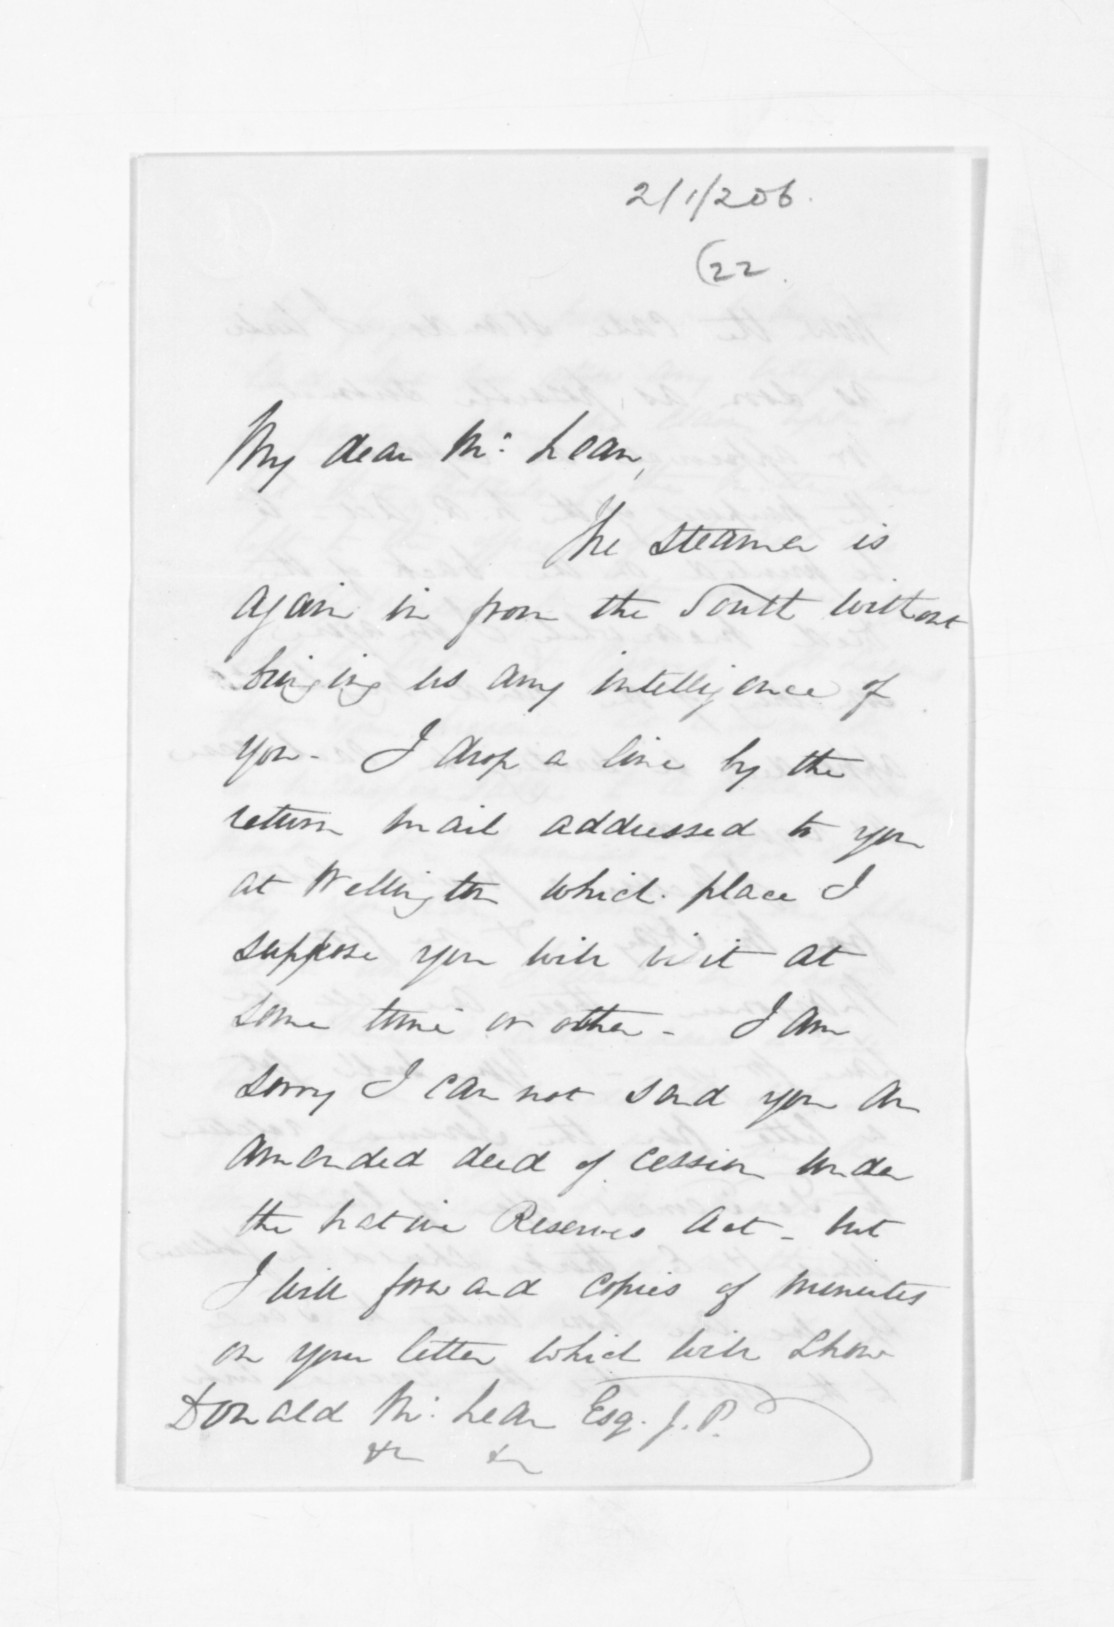 2/1/206.
(22.
My dear Mc: Lean,
The steamer is
again in from the South without
bringing us any intelligence of
you - I drop a line by the
return mail addressed to you
at Wellington which place I
suppose you will visit at
some time or other - I am
sorry I can not send you an
amended deed of cession under
the Native Reserves Act - but
I will forward copies of minutes
on your letter which will show
Donald Mc: Lean Esq. J.P.
&c &c